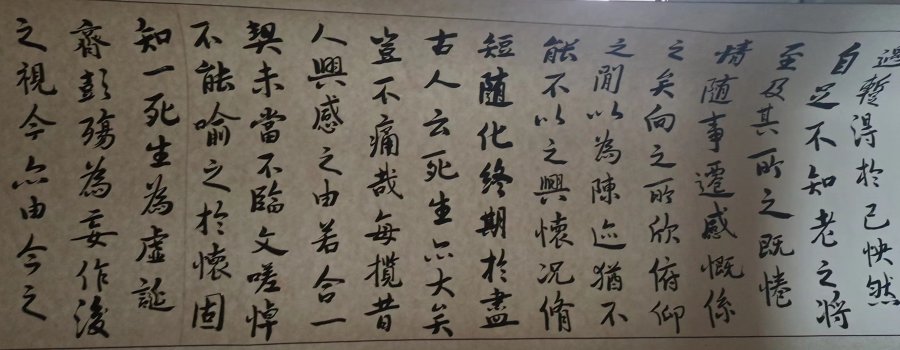 遇暫得於己怏然
自足不知老之將
至及其所之既惓
情隨事遷感慨係
之矣向之所欣俯仰
之閒以為陳迹猶不
能不以之興懷况脩
短隨化終期於盡
古人云死生亦大矣
豈不痛哉每攬昔
人興感之由若合一
契未當不臨文嗟悼
不能喻之於懷固
知一死生為虛誕
齊彭殤為妄作後
之視今亦由今之